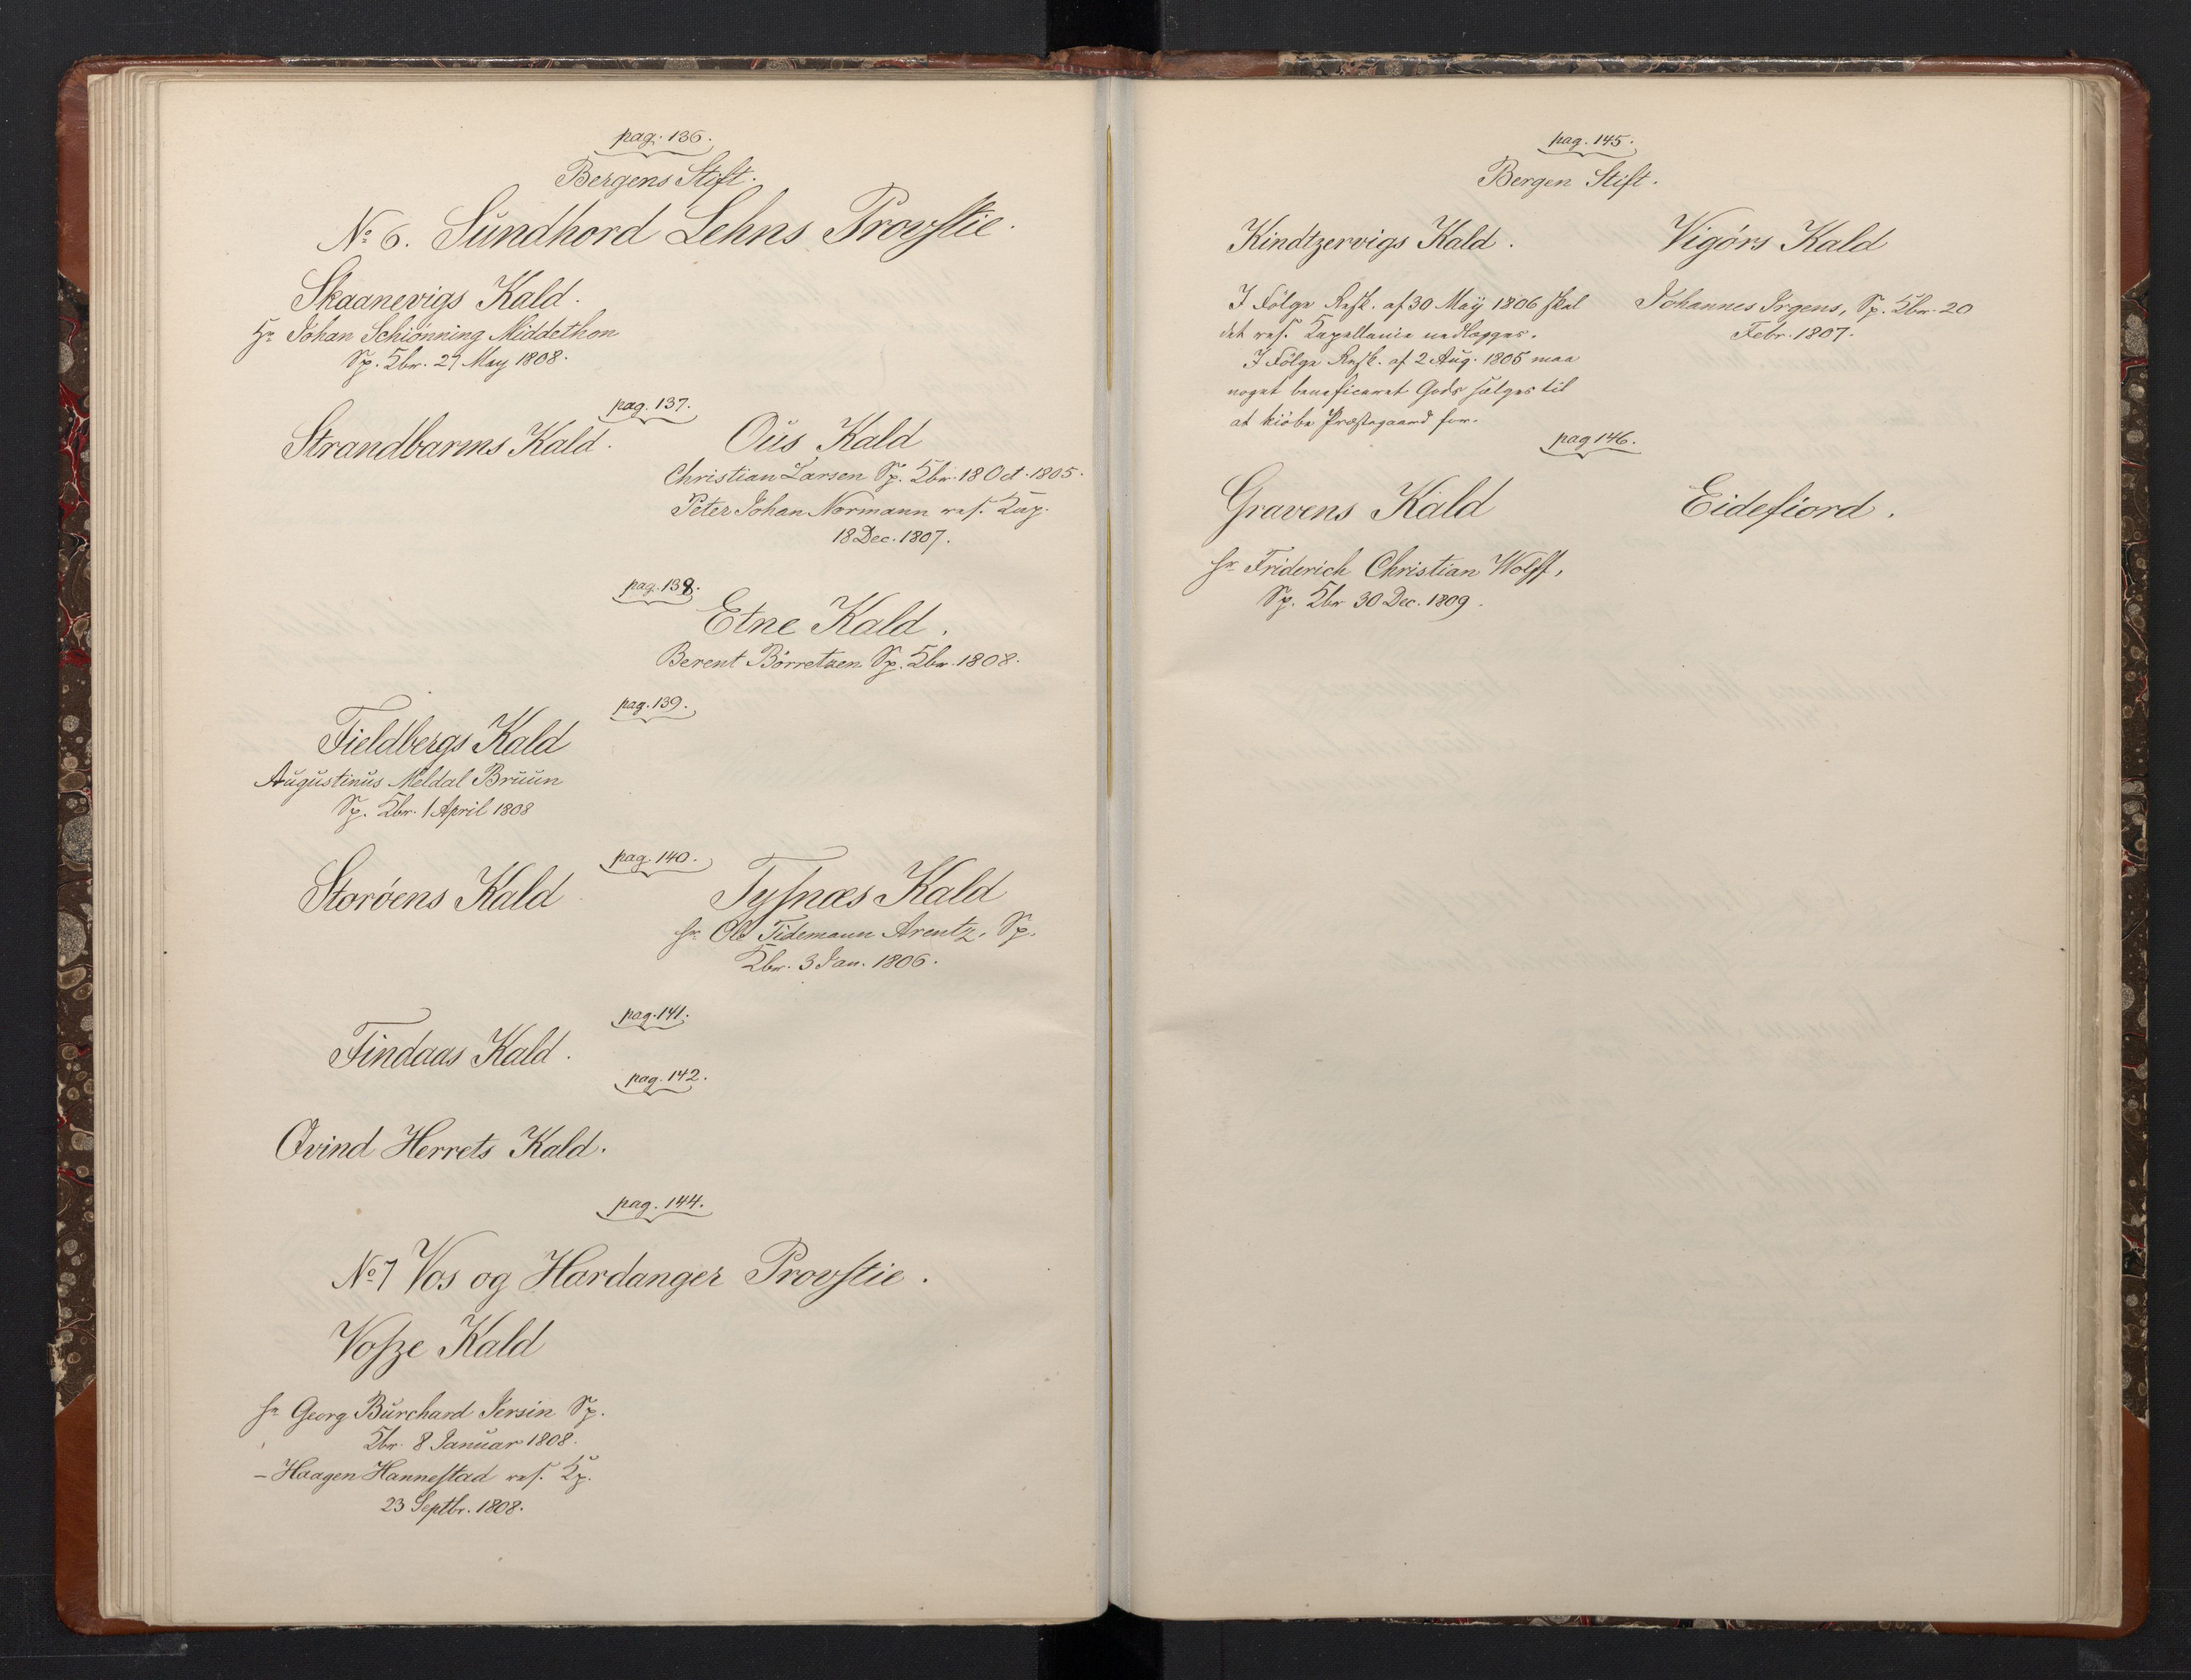 pag. 136.
Bergens Stift.
No 6. Sundhord Lehns Provstie.
Skaanevigs Kald.
Hr Johan Schiønning Middethon
Sp. Kbr. 27 May 1808.
pag. 137.
Strandbarms Kald.
Ous Kald
Christian Larsen Sp. Kbr. 18 Oct. 1805.
Peter Johan Normann res. Kap.
18 Dec. 1807.
pag. 138.
Etne Kald.
Berent Børretzen Sp. Kbr. 1808.
pag. 139.
Fieldbergs Kald
Augustinus Meldal Bruun
Sp. Kbr. 1 April 1808
pag. 140.
Storøens Kald
Tysnæs Kald
Hr Ole Tidemann Arentz, Sp.
Kbr. 3 Jan. 1806.
pag. 141.
Findaas Kald.
pag. 142.
Qvind Herrets Kald.
pag. 144.
No 7 Vos og Hardanger Provstie.
Vosze Kald
Hr Georg Burchard Jersin Sp.
Kbr. 8 Januar 1808.
– Haagen Hannestad res. Kp.
23 Septbr. 1808.
pag. 145.
Bergen Stift.
Kindtzervigs Kald.
I Følge Resk. af 30 May 1806 skal
det res. Kapellanie nedlægges.
I Følge Resk. af 2 Aug. 1805 maa
noget beneficeret Gods sælges til
at kiöbe Præstegaard for.
Vigørs Kald
Johannes Irgens, Sp. Kbr. 20
Febr. 1807.
pag 146.
Gravens Kald
Hr Friderich Christian Wolff,
Sp. Kbr 30 Dec. 1809.
Eidefiord.